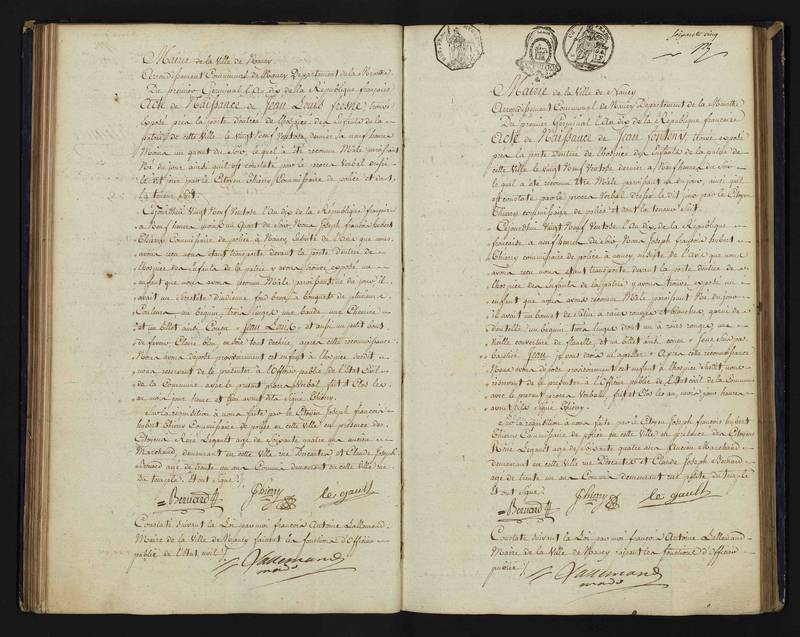 Mairie de la Ville de Nancy
Arrondissement Communal de Nancy Departement de la Meurthe
Du premier Germinal l'An dix de la République française
Acte de Naissance de Jean Louis trouvé
exposé près la porte d'entrée de l'hospice des Enfants de la
patrie de cette Ville le vingt Neuf Ventose dernier à neuf heures
un quart du Soir, lequel a été reconnu Mâle paroissant
Né du jour, ainsi qu'il est constaté par le procès Verbal
le dit jour par le Citoyen Thiery Commissaire de police et dont
la teneur suit.
Cejourd'hui Vingt Neuf Ventose l'An dix de la République française
à Neuf heures un quart du Soir, Nous Joseph françois hubert
Thiery Commissaire de police à Nancy, ensuite de l'avis que nous
avons reçu nous étant transporté devant la porte d'entrée de
l'hospice des Enfants de la patrie y avons trouvé exposé un
enfant que nous avons reconnu Mâle paroissant né du jour, il
avait un d'indienne fond blanc à bouquets de plusieurs
Couleurs un béguin, trois langes une bande une Chemise
et un billet ainsi Conçu Jean Louis et aussi un petit bout
de ruban bleu, après cette reconnaissance
Nous avons déposé provisoirement cet enfant à l'hospice susdit
nous réservant de le présenter à l'Officier public de l'Etat Civil
de la Commune avec le présent procès Verbal, fait et Clos les
an mois jour heure et lieu avant dits Signé Thiery.
Sur la réquisition à nous faite par le Citoyen Joseph françois
hubert Thiery Commissaire de police en cette Ville en présence des
Citoyens René Legault agé de soixante quatre ans ancien
Marchand, demeurant en cette Ville rue et Claude Joseph
Bernard agé de trente un ans Commis demeurant en cette Ville rue
du temple. Et ont Signé
Bernard Thiery le gault
Constaté suivant la Loi par moi françois Antoine Lallemand
Maire de la Ville de Nancy faisant les fonctions d'Officier
public de l'Etat civil
Lallemand
maire
soixante cinq
Mairie de la Ville de Nancy
Arrondissement Communal de Nancy Departement de la Meurthe
Du premier Germinal l'An dix de la République française
Acte de Naissance de Jean trouvé exposé
près la porte d'entrée de l'hospice des Enfants de la patrie de
cette Ville le vingt Neuf Ventose dernier à Neuf heures du Soir
lequel a été reconnu être Mâle paroissant né du jour, ainsi qu'il
est constaté par le procès Verbal dressé le dit jour par le Citoyen
Thiery commissaire de police et dont la teneur suit.
Cejourd'hui Vingt Neuf Ventose l'An dix de la République
française à neuf heures du Soir Nous Joseph françois hubert
Thiery commissaire de police à nancy ensuite de l'avis que nous
avons reçu nous étant transporté devant la porte d'entrée de
l'hospice des Enfants de la patrie y avons trouvé exposé un
enfant que nous avons reconnu Mâle paroissant Né du jour
il avait un bonnet à raies rouges et blanches, garni de
dentelle un béguin, trois langes dont un à raies rouges une
couverture de flanelle, et un billet ainsi conçu
Jean Après cette reconnaissance
Nous avons déposé provisoirement cet enfant à l'hospice susdit nous
réservant de le présenter à l'Officier public de l'Etat civil de la Commune
avec le présent procès Verbal, fait et Clos les an, mois jour heure
avant dits Signé Thiery.
Sur la réquisition à nous faite par le Citoyen Joseph françois hubert
Thiery Commissaire de police en cette Ville en présence des Citoyens
René Legault agé de Soixante quatre ans Ancien Marchand
demeurant en cette Ville rue et Claude Joseph Bernard
agé de trente un ans Commis demeurant en cette Ville du temple
Et ont Signé
Bernard Thiery le gault
Constaté suivant la Loi par moi françois Antoine Lallemand
Maire de la Ville de Nancy faisant les fonctions d'Officier
public
Lallemand
maire